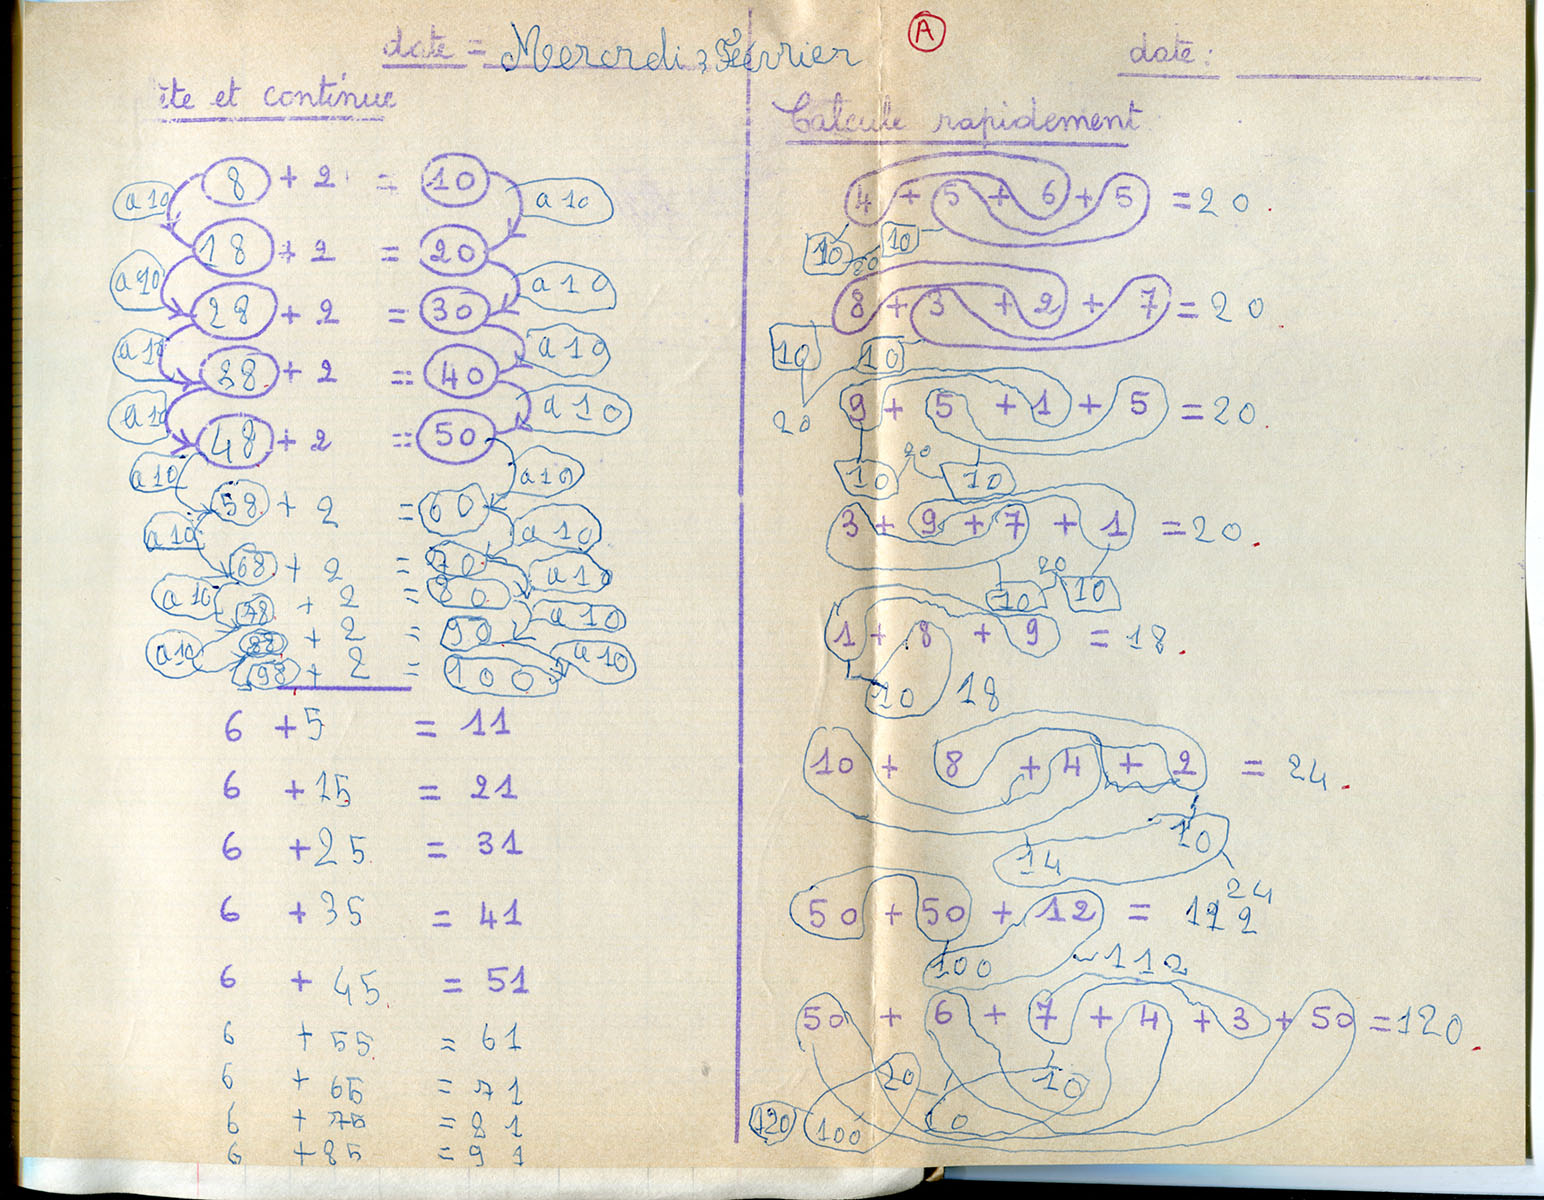 date = Mercrdi 3 Février
ète et continue
a10 8 + 2 = 10 a10
18 + 2 = 20
a10 28 + 2 = 30 a10
a10 38 + 2 = 40 a10
a10 48 + 2 = 50 a10
a10 58 + 2 = 60 a10
a10 68 + 2 = 70 a10
a10 78 + 2 = 80 a10
88 + 2 = 90 a10
a10 98 + 2 = 100 a10
6 + 5 = 11
6 + 15 = 21
6 + 25 = 31
6 + 35 = 41
6 + 45 = 51
6 + 55 = 61
6 + 65 = 71
6 + 75 = 81
6 + 85 = 91
A
date :
Calcule rapidement
4 + 5 + 6 + 5 = 20
10 20 10
8 + 3 + 2 + 7 = 20
10 10
20
9 + 5 + 1 + 5 = 20
10 20 10
3 + 9 + 7 + 1 = 20
10 20 10
1 + 8 + 9 = 18
10 18
10 + 8 + 4 + 2 = 24
14 10
24
50 + 50 + 12 = 112
100 112
50 + 6 + 7 + 4 + 3 + 50 = 120
20 10
120 100 10